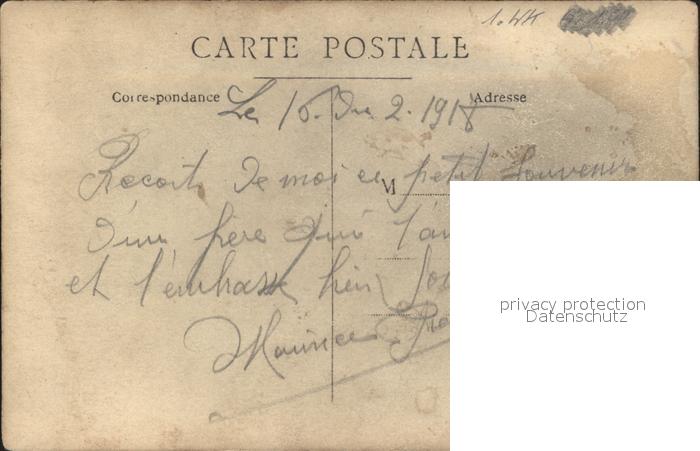 1. WK
CARTE POSTALE
Correspondance
Adresse
Le 16. Du 2. 1918
Recoit de moi ce petit Souvenir
M
d'un frère qui t'ai
et t'embrasse bien
Maurice
privacy protection
Datenschutz